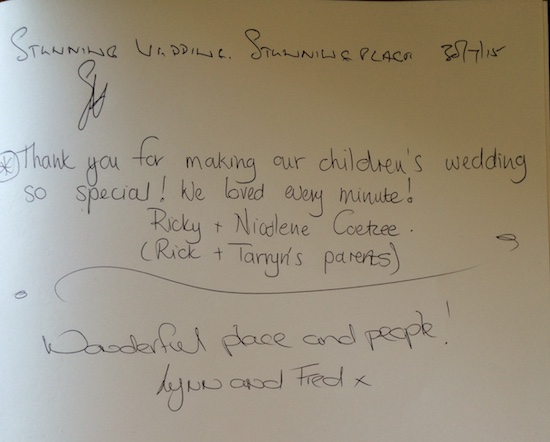 STUNNING WEDDING. STUNNING PLACE 30/7/15
* Thank you for making our children's wedding
so special! We loved every minute!
Ricky + Nicolene Coetzee.
(Rick + Tarryn's parents)
Wonderful place and people!
Lynn and Fred x